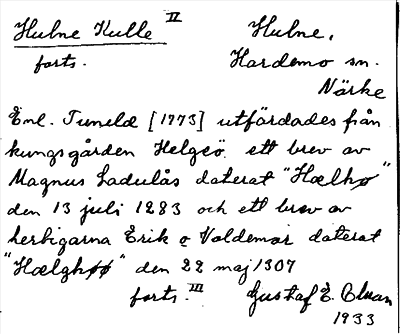 Hulne Kulle II
Hulne,
forts.
Hardemo sn.
Närke
Enl. Tuneld [1773] utfärdades från
kungsgården Helgeö ett brev av
Magnus Ladulås daterat "Hælhø"
den 13 juli 1283 och ett brev av
hertigarna Erik o Valdemar daterat
"Hælghøø" den 22 maj 1307
forts. III
Gustaf E.
1933